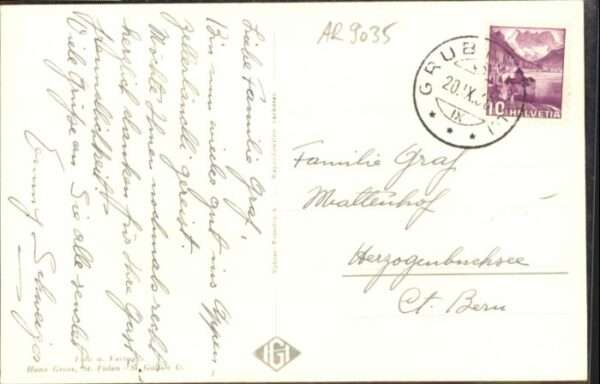 AR 9035
Liebe Familie Graf,
Bin nun wieder gut ins Appen-
zellerländli gereist.
Möchte Ihnen nochmals recht
herzlich danken für Ihre Gast-
freundlichkeit.
Viele Grüsse an Sie alle sendet
Schweizer
GRUB
20.IX.
IX
10 HELVETIA
Familie Graf
Mattenhof
Herzogenbuchsee
Ct. Bern
IGI
Foto u. Verlag
Hans Gross, St. Fiden - St. Gallen O.